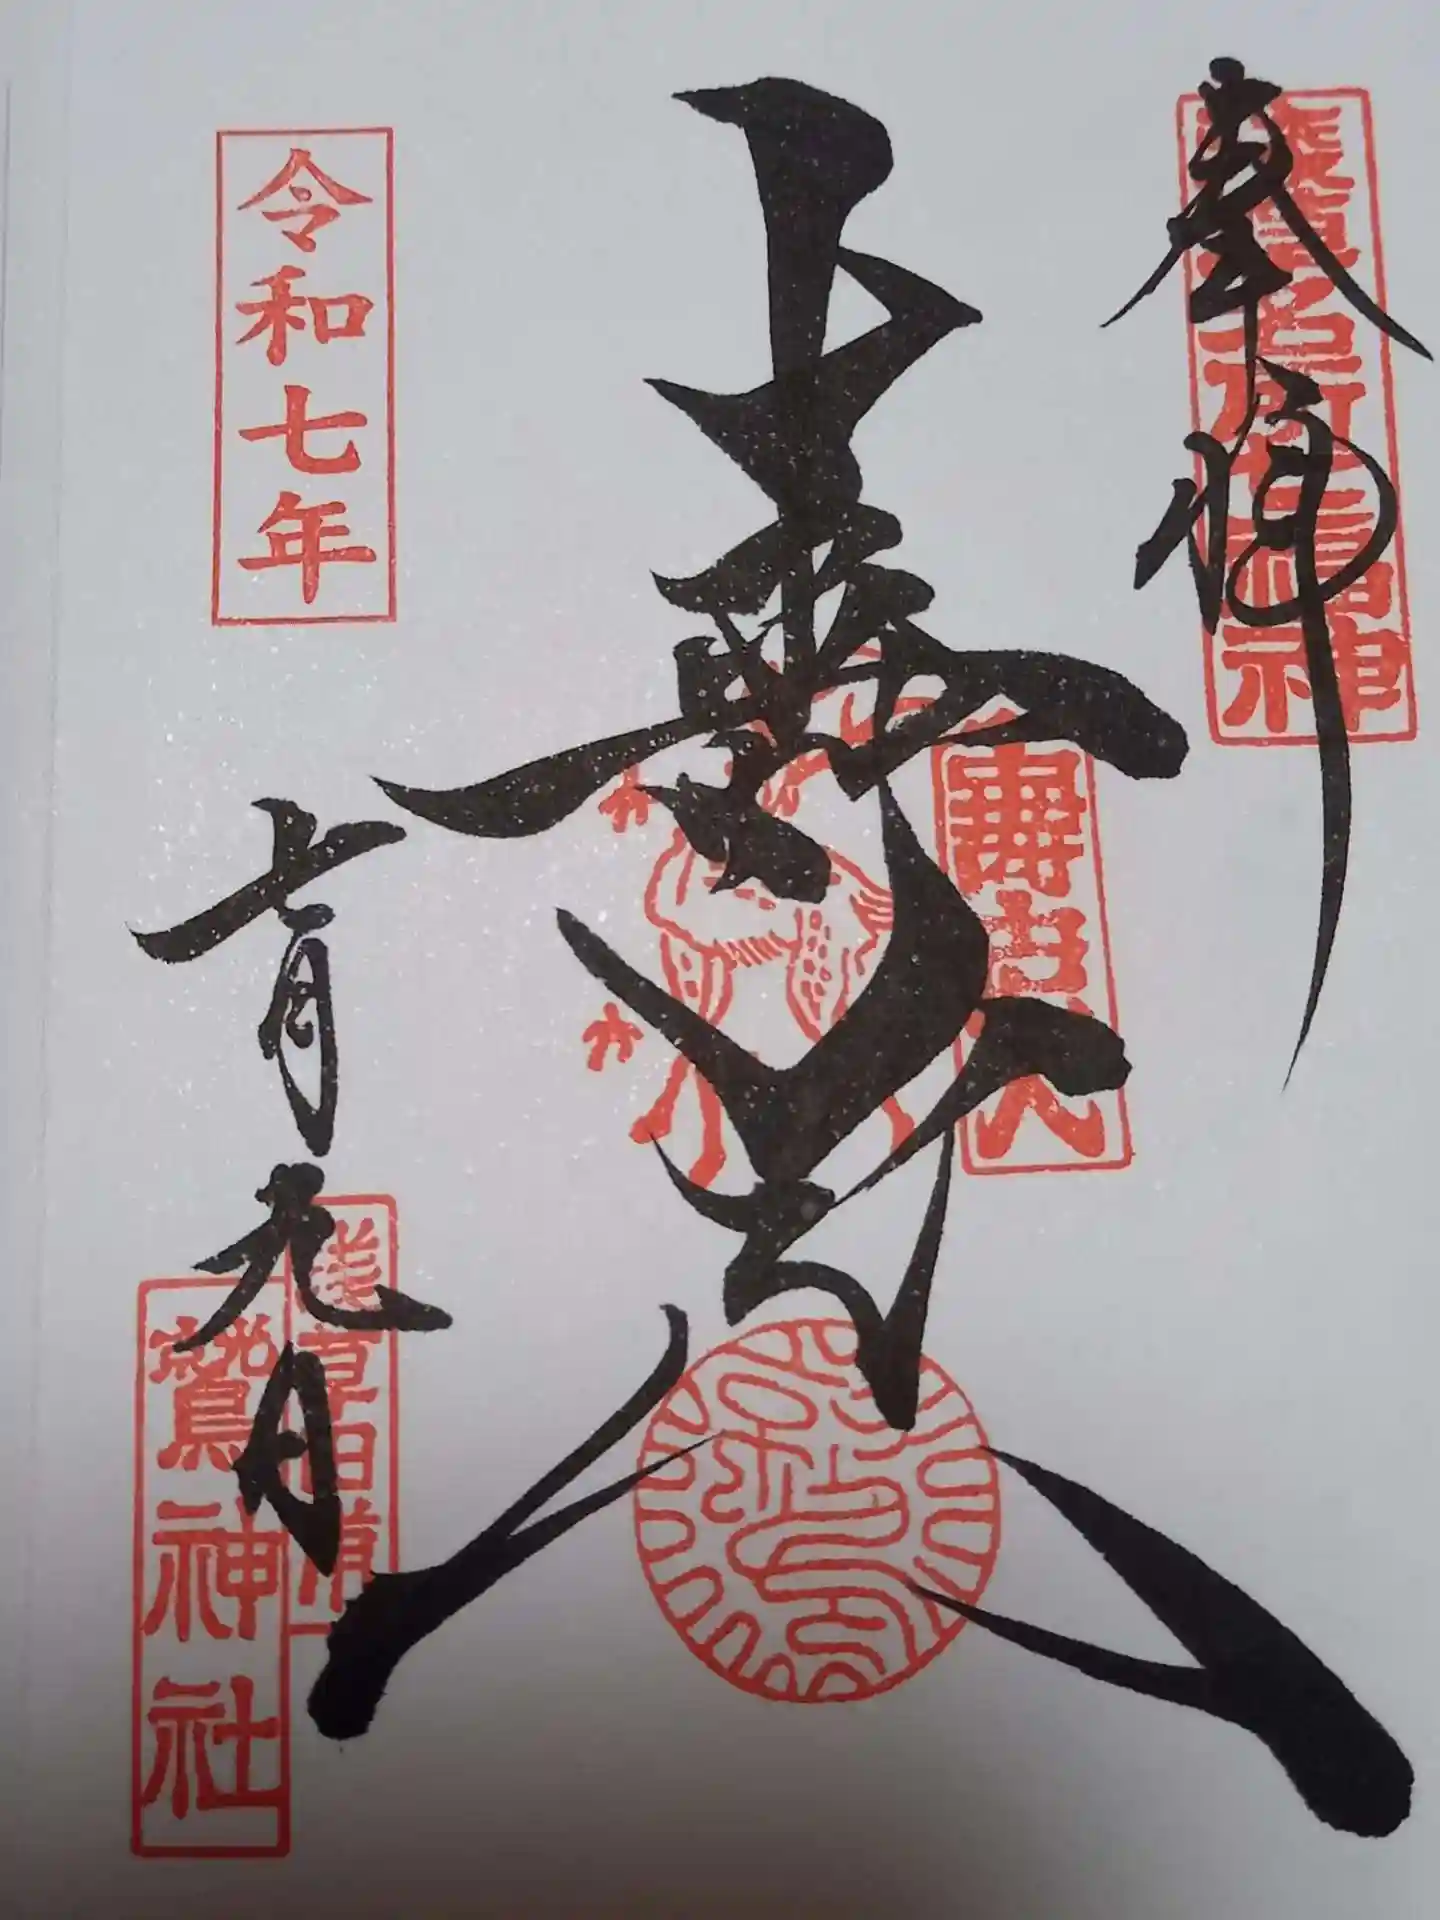 奉拝
浅草名所七福神
壽老人
壽老人
令和七年
七月九日
淺草田甫
鷲神社